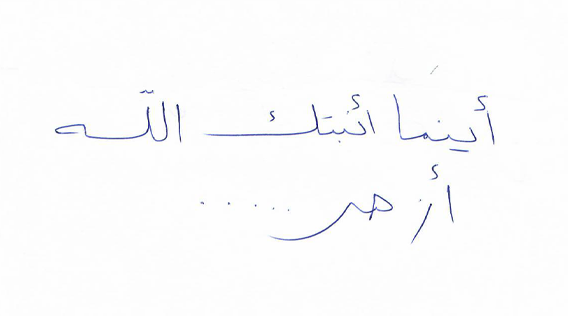 أينما أنبتك اللّه
أزهر ......